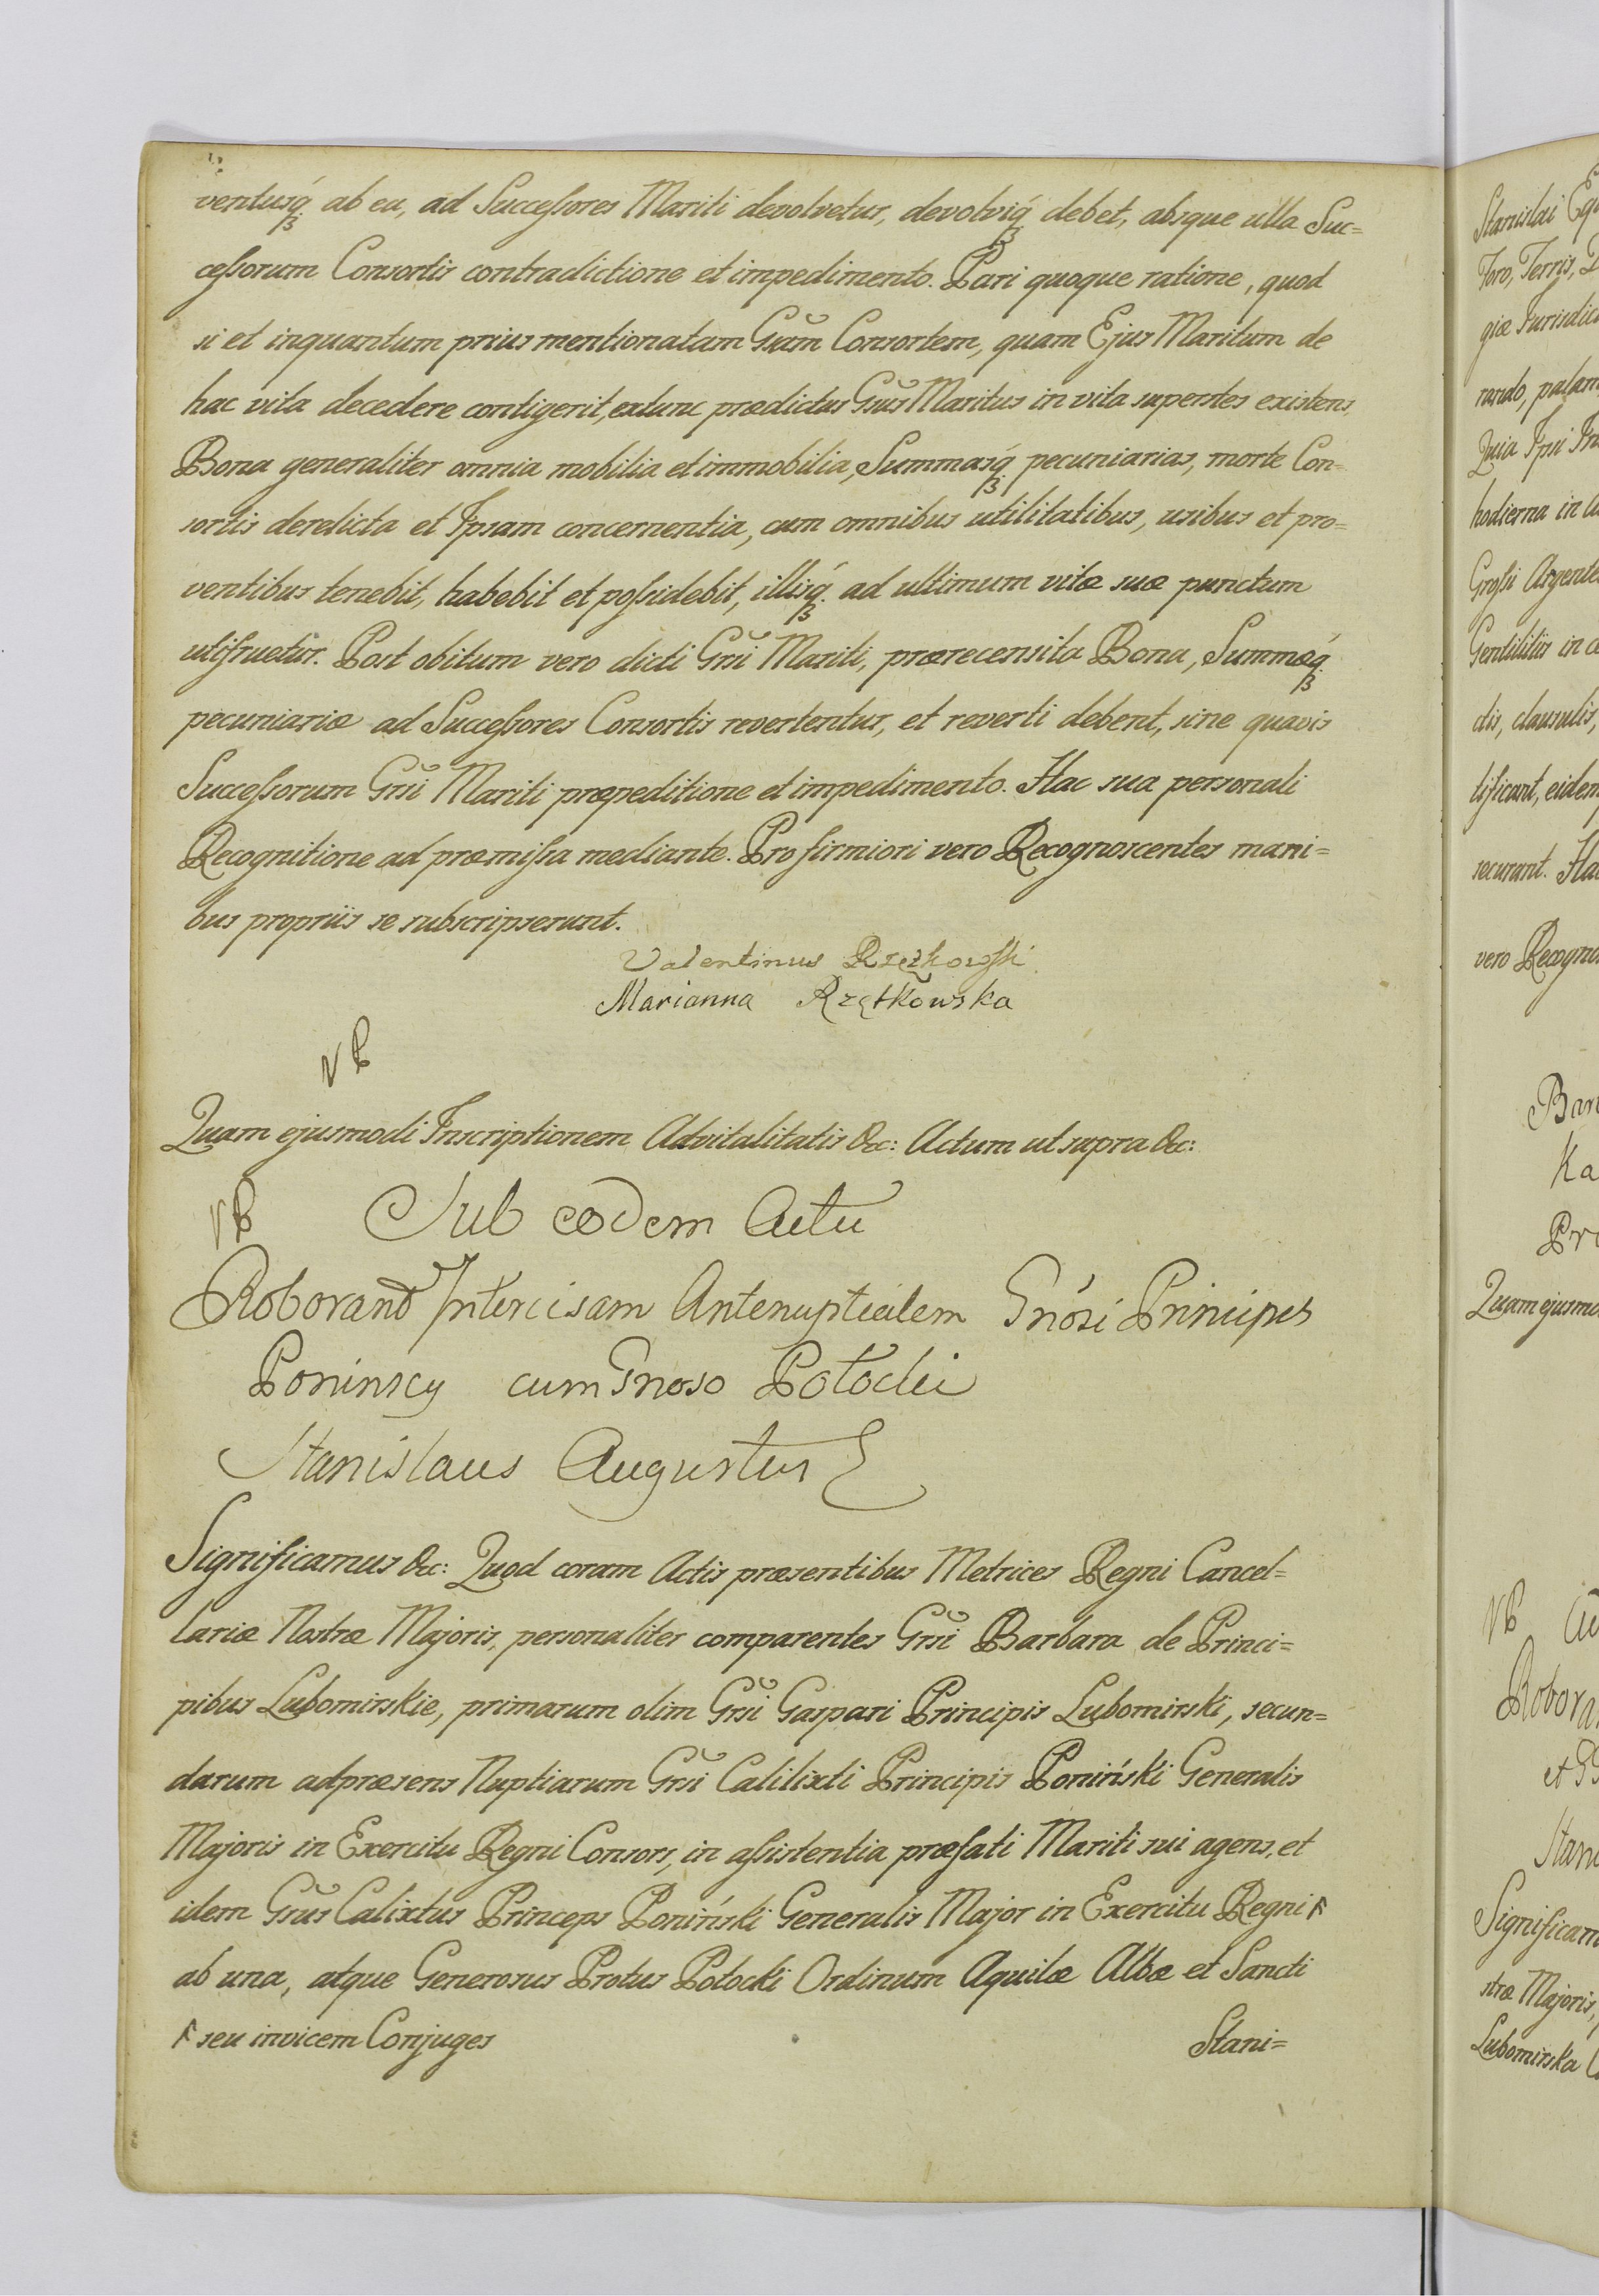 ventusq́ꝫ ab ea, ad Succeſsores Mariti devolvetur, devolviq́ꝫ debet, absque ulla Suc=
ceſsorum Consortis contradictione et impedimento. Pari quoque ratione, quod
si et inquantum prius mentionatam Gsam Consortem, quam Ejus Maritum de
hac vita decedere contigerit, extunc prædictus Gsus Maritus in vita superstes existens,
Bona generaliter omnia mobilia et immobilia, Summasq́ꝫ pecuniarias, morte Con=
sortis derelicta et Ipsam concernentia, cum omnibus utilitatibus, usibus et pro=
ventibus tenebit, habebit et poſsidebit, illisq́ꝫ ad ultimum vitæ suæ punctum
utifruetur. Post obitum vero dicti Gsi Mariti, prærecensita Bona, Summæq́ꝫ
pecuniariæ ad Succeſsores Consortis revertentur, et reverti debent, sine quavis
Succeſsorum Gsi Mariti præpeditione et impedimento. Hac sua personali
Recognitione ad præmiſsa mediante. Pro firmiori vero Recognoscentes mani=
bus propriis se subscripserunt.
Valentinus Rzętkowſki
Marianna Rzętkowska
Quam ejusmodi Inscriptionem Advitalitatis &c: Actum ut supra &c:
Sub eodem Actu
Roborand Intercisam Antenuptialem Gnosi Principes
Poninscy cum Gnoso Potocki
Stanislaus Augustus
Significamus &c: Quod coram Actis præsentibus Metrices Regni Cancel=
lariæ Nostræ Majoris, personaliter comparentes Gsi Barbara de Princi=
pibus Lubomirskie, primarum olim Gsi Gaspari Principis Lubomirski, secun=
darum adpræsens Nuptiarum Gsi Calilixti Principis Poniński Generalis
Majoris in Exercitu Regni Consors, in aſsistentia præfati Mariti sui agens, et
idem Gsus Calixtus Princeps Poniński Generalis Major in Exercitu Regni
ab una, atque Generosus Protus Potocki Ordinum Aquilæ Albæ et Sancti
seu invicem Conjuges
Stani=
Stanislai
Foro, Terris,
giæ
rando, palam
Quia Ipsi
hodierna in
Groſsi
Gentilitiis in
dis, clausulis,
tificant,
securant.
vero
Quam
Significam
stræ Majoris,
Lubomirska